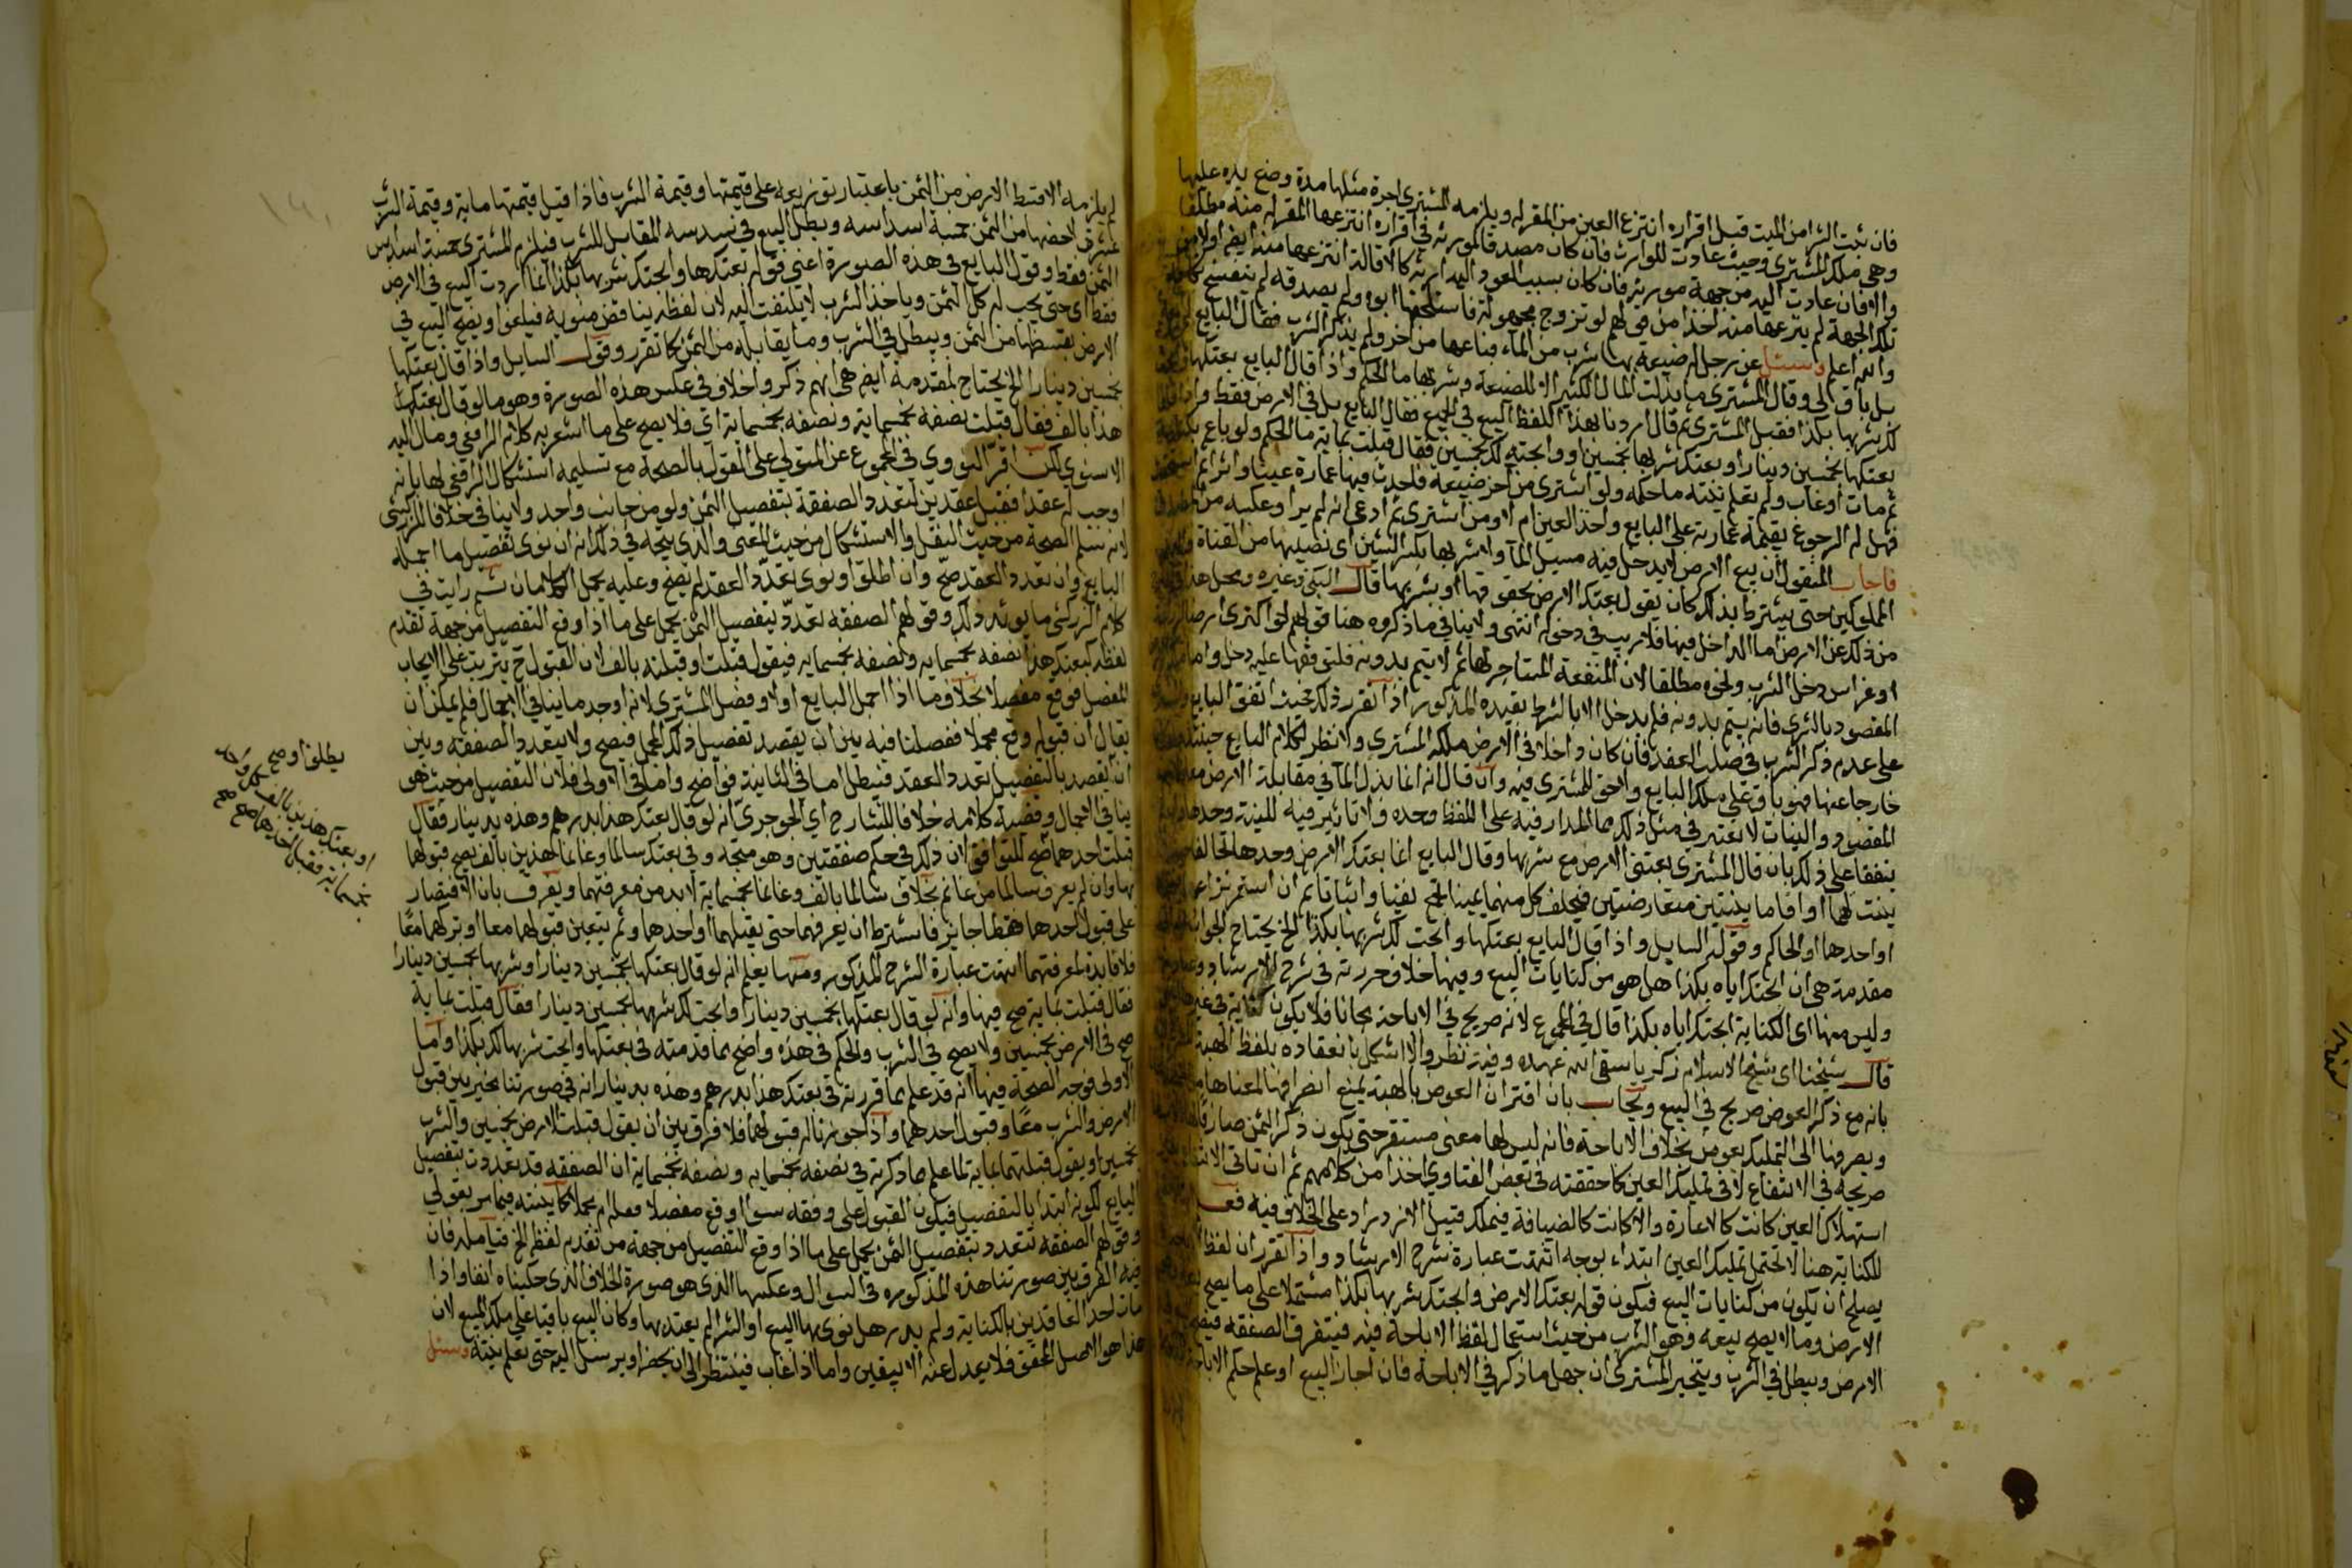 فان ثبت الشرا من الميت قبل اقراره انتزع العين من المقر له ويلزمه للمشتري اجرة مثلها مدة وضع يده عليها
وهي ملك المشتري وحيث عادت للوارث فان كان مصدقا لمورثه في اقراره انتزعها المقر له منه مطلقا
والا فان عادت اليه من جهة مورثه فان كان بسبب العود اليه ارثه كالاقالة انتزعها منه ايض او لا من
تلك الجهة لم ينزعها منه اخذا من قولهم لو تزوج مجهولة فاستلحقها ابوه ولم يصدقه لم ينفسخ
والله اعلم وسئل عن رجل له ضيعة بها شرب من الماء فباعها من اخر ولم يذكر الشرب فقال البايع
بل باق لي وقال المشتري ما بذلت المال الكثير الا للضيعة وشربها ما الحكم واذا قال البايع بعتكها
لك شربها بكذا فقبل المشتري ثم قال اردنا بهذا اللفظ البيع في الجميع فقال البايع بل في الارض فقط
بعتكها بخمسين دينارا وبعتك شربها بخمسين او وابحته لك بخمسين فقال قبلت بماية ما الحكم ولو باع
ثم مات او غاب ولم تعلم نيته ما حكمه ولو اشترى من اخر ضيعة فاحدث فيها عمارة عينا واثرا ثم
فهل له الرجوع بقيمة عمارته على البايع واخذ العين ام لا ومن اشترى ثم ادعى انه لم ير او عكسه من
فاجاب المنقول ان بيع الارض لا يدخل فيه مسيل الماء ولا شربها بكسر الشين اي نصيبها من القناة
المملوكين حتى يشترط بذلك كان يقول بعتك الارض بحقوقها او بشربها قال السبكي وغيره ومحل هذا
من ذلك عن الارض اما الداخل فيها فلا ريب في دخوله انتهى ولا ينافي ما ذكروه هنا قولهم لو اكترى ارضا
او غراس دخل الشرب ونحوه مطلقا لان المنفعة المتاجر لها ثم لا يتم بدونه فلتوقفها عليه دخل واما
المقصود بالشرى فانه يتم بدونه فلم يدخل الا بالشرط بقيده المذكور اذا تقرر ذلك فحيث اتفق البايع
على عدم ذكر الشرب في صلب العقد فان كان داخلا في الارض ملكه المشتري ولا نظر لكلام البايع حينئذ
خارجا عنها فهو باق على ملك البايع ولا حق للمشتري فيه وان قال انه انما بذل المال في مقابلة الارض
المقصود والنيات لا تعتبر في مثل ذلك مما المدار فيه على اللفظ وحده ولا تاثير فيه للنية وحدها
يتفقا على ذلك بان قال المشتري بعتني الارض مع شربها وقال البايع انما بعتك الارض وحدها تحالفا
بينت لهما او اقاما بينتين متعارضتين فيحلف كل منهما يمينا تجمع نفيا واثباتا ثم ان استمر نزاعهما
او احدهما او الحاكم وقول السايل واذا قال البايع بعتكها وابحت لك شربها بكذا الخ يحتاج الجواب
مقدمة هي ان ابحتك اياه بكذا هل هو من كنايات البيع وفيها خلاف حررته في شرح الارشاد
وليس منها اي الكناية ابحتك اياه بكذا قال في المجموع لانه صريح في الاباحة مجانا فلا يكون كناية في غيرها
قال شيخنا اي شيخ الاسلام زكريا سقى الله عهده وفيه نظر والا اشكل بانعقاده بلفظ الهبة
بانه مع ذكر العوض صريح في البيع ويجاب بان اقتران العوض بالهبة يمنع انصرافها لمعناها
ويصرفها الى التمليك بعوض بخلاف الاباحة فانه ليس لها معنى مستقر حتى يكون ذكر الثمن صارفا
صريحة في الانتفاع لا في تمليك العين كما حققته في بعض الفتاوي اخذا من كلامهم ثم ان تاتى
استهلاك العين كانت كالاعارة والا كانت كالضيافة فيملك قبيل الازدراد على الخلاف فيه
للكناية هنا لا تحتمل تمليك العين ابتداء بوجه انتهت عبارة شرح الارشاد واذا تقرر ان لفظ
يصلح ان يكون من كنايات البيع فيكون قوله بعتك الارض وابحتك شربها بكذا مشتملا على ما يصح
الارض وما لا يصح بيعه وهو الشرب من حيث استعمال لفظ الاباحة فيه فيتفرق الصفقة
الارض ويبطل في الشرب ويتخير المشتري ان جهل ما ذكر في الاباحة فان اجاز البيع او علم حكم
لم يلزمه الا قسط الارض من الثمن باعتبار توزيعه على قيمتها وقيمة الشرب فاذا قيل قيمتها ماية وقيمة الشرب
عشرون خصها من الثمن خمسة اسداسه وبطل البيع في سدسه المقابل للشرب فيلزم المشتري خمسة اسداس
الثمن فقط وقول البايع في هذه الصورة اعني قوله بعتكها وابحتك شربها بكذا انما اردت البيع في الارض
فقط اي حتى يجب له كل الثمن وياخذ الشرب لا يلتفت اليه لان لفظه يناقض منويه فيلغو ويصح البيع في
الارض بقسطها من الثمن ويبطل في الشرب وما يقابله من الثمن كما تقرر وقول السايل واذا قال بعتكها
بخمسين دينارا الخ يحتاج لمقدمة ايض هي انهم ذكروا خلاف في عكس هذه الصورة وهو ما لو قال بعتك
هذا بالف فقال قبلت نصفه بخمسماية ونصفه بخمسماية اي فلا يصح على ما اشعر به كلام الرافعي ومال اليه
الاسنوي لكن اقر النووي في المجموع عن المتولي على القول بالصحة مع تسليمه استشكال الرافعي لها بانه
اوجب له عقدا فقبل عقدين لتعدد الصفقة بتفصيل الثمن ولو من جانب واحد ولا ينافي خلافا للزركشي
لانه تسلم الصحة من حيث النقل والاستشكال من حيث المعنى والذي يتجه في ذلك انه ان نوى تفصيل ما اجمله
البايع وان تعدد العقد صح وان اطلق او نوى تعدد العقد لم يصح وعليه يحمل الكلامان ثم رايت في
كلام الزركشي ما يؤيد ذلك وقولهم الصفقة تتعدد بتفصيل الثمن يحمل على ما اذا وقع التفصيل من جهة تقدم
لفظه كبعتك هذا نصفه بخمسمايه ونصفه بخمسمايه فيقول قبلت او قبلته بالف لان القبول ح يترتب على الايجاب
المفصل فوقع مفصلا بخلاف ما اذا اجمل البايع اولا وفصل المشتري لانه اوجد ما ينافي الاجمال فلم يمكن ان
يقال ان قبوله وقع مجملا ففصلنا فيه بين ان يقصد تفصيل ذلك المجمل فيصح ولا يتعدد الصفقة وبين
ان يقصد بالتفصيل تعدد العقد فيبطل اما في الثانية فواضح واما في الاولى فلان التفصيل من حيث هو
ينافي الاجمال وقضية كلامه خلافا للشارح اي الجوجري انه لو قال بعتك هذا بدرهم وهذه بدينار فقال
قبلت احدهما صح للتوافق لان ذلك في حكم صفقتين وهو متجه وفي بعتك سالما وغانما هذين بالف يصح قبولهما
بها وان لم يعرف سالما من غانم بخلاف سالما بالف وغانما بخمسماية لا بد من معرفتهما ويفرق بان الاقتصار
على قبول احدهما هنا جايز فاشترط ان يعرفهما حتى يقبلهما او احدهما وثم يتعين قبولهما معا او تركهما معا
فلا فايدة لمعرفتهما انتهت عبارة الشرح المذكور ومنها يعلم انه لو قال بعتكها بخمسين دينارا وشربها بخمسين دينارا
فقال قبلت بماية صح فيها وانه لو قال بعتكها بخمسين دينارا وابحت لك شربها بخمسين دينارا فقال قبلت بماية
صح في الارض بخمسين ولا يصح في الشرب والحكم في هذه واضح بما قدمته في بعتكها وابحت شربها لك بكذا واما
الاولى فوجه الصحة فيها انه قد علم بما قررته في بعتك هذا بدرهم وهذه بدينار انه في صورتنا يخير بين قبول
الارض والشرب معا وقبول احدهما واذا جوزنا له قبولهما فلا فرق بين ان يقول قبلت الارض بخمسين والشرب
بخمسين او يقول قبلتهما بماية لما علم مما ذكرته في نصفه بخمسمايه ونصفه بخمسماية ان الصفقه قد تعددت بتفصيل
البايع لكونه ابتدا بالتفصيل فيكون القبول على وفقه سوا اوقع مفصلا فعله ام مجملا كما بينته فيما مر بقولي
وقولهم الصفقه تتعدد بتفصيل الثمن يحمل على ما اذا وقع التفصيل من جهة من تقدم لفظه الخ فتامله فان
فيه الفرق بين صورتنا هذه المذكوره في السوال وعكسها الذي هو صورة الخلاف الذي حكيناه انفا واذا
مات احد العاقدين بالكناية ولم يدر هل نوى بها البيع او الشرا لم يعتد بها وكان المبيع باقيا على ملك البايع لان
هذا هو الاصل المحقق فلا يعدل عنه الا بيقين واما اذا غاب فينتظر الى ان يحضر او يرسل اليه حتى تعلم نيته وسئل
يطلق او صح
او بعتك هذين بالف كل واحد
بخمسماية فقبل احدهما صح صح